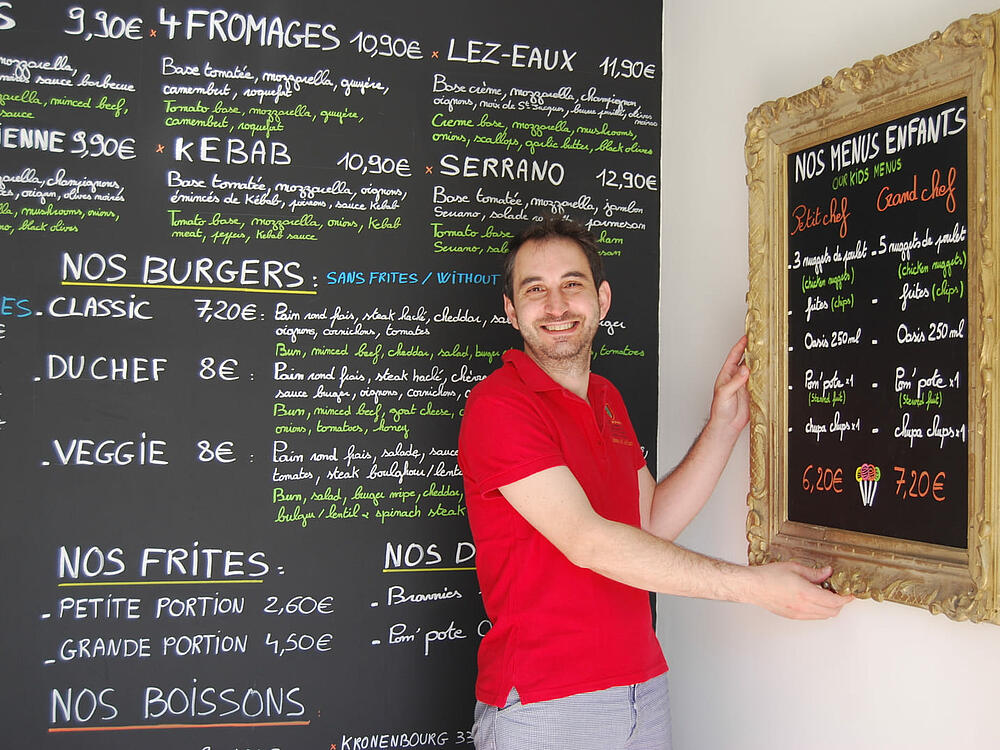 S 9,90€
mozzarella,
sauce barbecue
mozzarella, minced beef,
sauce
IENNE 9,90€
mozzarella, champignons,
origan, olives noires
mushrooms, onions,
black olives
× 4 FROMAGES 10,90€
Base tomatée, mozzarella, gruyère,
camembert, roquefort
Tomato base, mozzarella, gruyère,
camembert, roquefort
× KEBAB 10,90€
Base tomatée, mozzarella, oignons,
émincés de Kébab, poivrons, sauce Kebab
Tomato base, mozzarella, onions, Kebab
meat, peppers, Kebab sauce
× LEZ-EAUX 11,90€
Base crème, mozzarella, champignon,
oignons, noix de St Jacques, beurre persillé, olives
noires
Creme base, mozzarella, mushrooms,
onions, scallops, garlic butter, black olives
× SERRANO 12,90€
Base tomatée, mozzarella, jambon
Serrano, salade parmesan
Tomato base, ham
Serrano, parmesan
NOS BURGERS : SANS FRITES / WITHOUT
ES
- CLASSIC 7,20€ : Pain rond frais, steak haché, cheddar,
oignons, cornichons, tomates
Bun, minced beef, cheddar, salad, tomatoes
- DU CHEF 8€ : Pain rond frais, steak haché,
sauce burger, oignons, cornichons,
Bun, minced beef, goat cheese,
onions, tomatoes, honey
- VEGGIE 8€ : Pain rond frais, salade, sauce
tomates, steak boulghour/
Bun, salad, cheddar,
bulgur/lentil & spinach steak
NOS FRITES :
- PETITE PORTION 2,60€
- GRANDE PORTION 4,50€
NOS D
- Brownies
- Pom'pote
NOS BOISSONS
× KRONENBOURG 33
NOS MENUS ENFANTS
OUR KIDS MENUS
Petit chef
- 3 nuggets de poulet
(chicken nuggets)
- frites (chips)
- Oasis 250ml
- Pom'pote x1
(Stewed fruit)
- chupa chups x1
6,20€
Grand chef
- 5 nuggets de poulet
(chicken nuggets)
- frites (chips)
- Oasis 250 ml
- Pom'pote x1
(Stewed fruit)
- chupa chups x1
7,20€